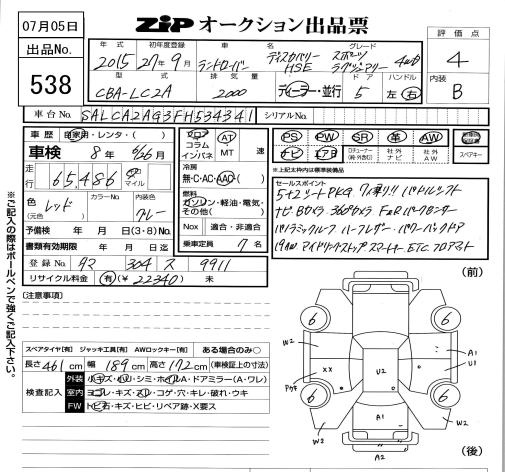 07月05日
ZiP オークション出品票
出品No.
538
年式 初年度登録 車名 グレード
2015 27年9月 ランドローバー ディスカバリー スポーツ
HSE ラグジュアリー 4WD
型式 排気量 ドア ハンドル
CBA-LC2A 2000 ディーラー・並行 5 左 右
評価点
4
内装
B
車台No. SALCA2AG3FH534341 シリアルNo.
車歴 自家用・レンタ・( )
車検 8年 6/26月
走行 65,486 km マイル
色 (元色) レッド カラーNo 内装色 グレー
予備検 年 月 日(3・8)No.
書類有効期限 年 月 日迄
登録No 304 ス 9911
リサイクル料金 有(¥22340) 未
フロア コラム インパネ AT MT 速
冷房
無・C・AC・AAC・( )
燃料
ガソリン・軽油・電気・
その他( )
Nox 適合・非適合
乗車定員 7名
PS PW SR 革 AW
ナビ エアB 社外ナビ 社外AW スペアキー
※上記太枠内は標準装備品
セールスポイント
5+2シートPKG 7人乗り!! パートレンシフト
ナビ Bカメラ 360°カメラ F&Rパークセンサー
パノラミックルーフ ハーフレザー パワーバックドア
19AW アイドリングストップ スマートキー ETC フロアマット
※ご記入の際はボールペンで強くご記入下さい。
(注意事項)
スペアタイヤ[有] ジャッキ工具[有] AWロックキー[有] ある場合のみ○
長さ 461cm 幅 189cm 高さ 172cm (車検証上の寸法)
検査記入
外装 小キズ・凹・シミ・ホイルA・ドアミラー(A・ワレ)
室内 ヨゴレ・キズ・スレ・コゲ・穴・キレ・破れ・ウキ
FW トビ石・キズ・ヒビ・リペア跡・X要ス
(前)
6 6
W2 A1
U1
XX U2
6 6
A1
W2 W2
A2
(後)